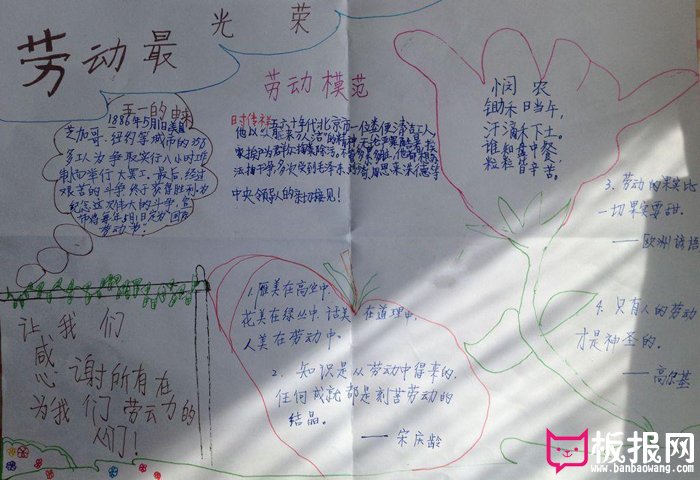 劳动最光荣
五一的由来
1886年5月1日美国
芝加哥、纽约等城市的356
多工人为争取实行八小时工
制而举行大罢工,最后,经过
艰苦的斗争终于获得胜利,为
纪念这次伟大的斗争,宣
布将每年5月1日定为国际
劳动节!
劳动模范
时传祥五六十年代北京市一位粪便清洁工人,
中央领导人的亲切接见!
悯农
锄禾日当午,
汗滴禾下土。
谁知盘中餐,
粒粒皆辛苦。
3、劳动的果实比
一切果实要甜。
——欧洲谚语
4、只有人的劳动
才是神圣的。
——高尔基
1、雁美在高空中,
花美在绿丛中,话美在道理中,
人美在劳动中。
2、知识是从劳动中得来的,
任何成就都是刻苦劳动的
结晶。
——宋庆龄
让我们
感谢所有在
为我们劳动的
人们!
板报网
www.banbaowang.com